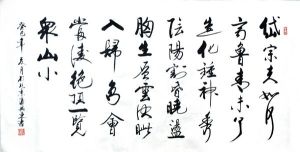 岱宗夫如何
齊魯青未了
造化鍾神秀
陰陽割昏曉盪
胸生層雲決眥
入歸鳥會
當凌絕頂一覽
眾山小
癸巳年